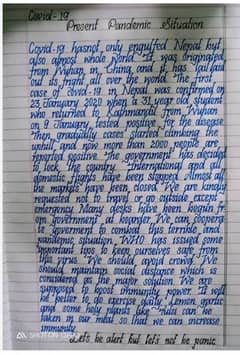 Covid-19
Present Pandemic Situation
Covid-19 hasnot only engulfed Nepal but
also almost whole world. It was originated
from Wuhan in China and it has spread
out its fright all over the world. The first
case of Covid-19 in Nepal was confirmed on
23 January 2020 when a 31 year old student
who returned to Kathmandu from Wuhan
on 9 January, tested positive for the disease
Then gradually cases started climbing the
uphill and now more than 2000 people are
reported positive. The government has decided
to lock the country. International and all
domestic flights have been stopped. Almost all
the markets have been closed. We are kindly
requested not to travel or go outside except
emergency. Many desks have been began
government at boarder. We can cooperate
government to combat this terrible and
pandemic situation. WHO has issued some
important tips to keep ourselves safe from
this virus. We should avoid crowd. We
should maintain social distance which is
considered as the major solution. We are
supposed to boost immunity power. It will
be better to do exercise daily. Lemon, garlic
and some holy plants like can be
taken in our meal so that we can increase
immunity.
Let's be alert but let's not be panic.